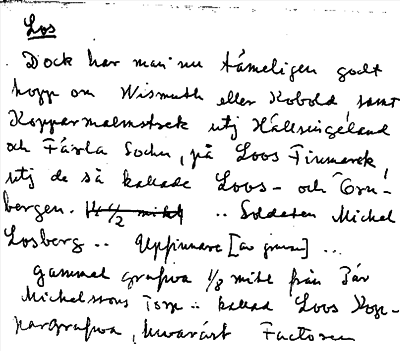 Los
Dock har man nu tämeligen godt
hopp om Wismuth eller Kobold samt
Kopparmalmstrek utj Hällsingeland
och Färla Sochn, på Loos Finmarck
utj de så kallade Loos- och Gru-
bergen. .. Soldaten Michel
Losberg .. Uppfinnare [av gruvan] ...
gammal grufwa 1/8 mihl från Pär
Michelssons Torp .. kallad Loos Kop-
pargrufwa, hwaräst Factoren